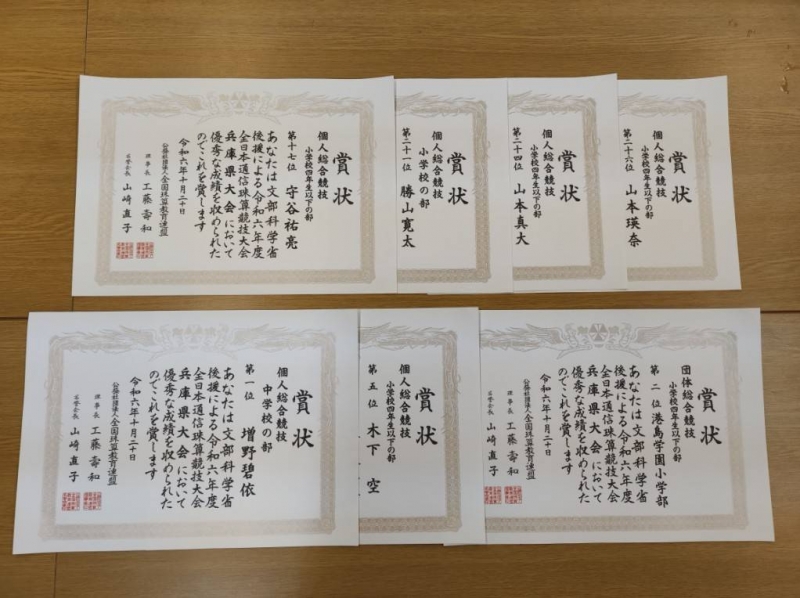 賞状
個人総合競技
小学校四年生以下の部
第十七位 守谷祐亮
あなたは文部科学省
後援による令和六年度
全日本通信珠算競技大会
兵庫県大会において
優秀な成績を収められた
のでこれを賞します
令和六年十月二十日
公益社団法人全国珠算教育連盟
理事長 工藤壽和
山崎直子
賞状
個人総合競技
小学校の部
第二十一位 勝山寛太
賞状
個人総合競技
小学校四年生以下の部
第二十四位 山本真大
賞状
個人総合競技
小学校四年生以下の部
第二十六位 山本瑛奈
賞状
個人総合競技
中学校の部
第一位 増野碧依
あなたは文部科学省
後援による令和六年度
全日本通信珠算競技大会
兵庫県大会において
優秀な成績を収められた
のでこれを賞します
令和六年十月二十日
公益社団法人全国珠算教育連盟
理事長 工藤壽和
山崎直子
賞状
個人総合競技
小学校四年生以下の部
第五位 木下空
賞状
団体総合競技
小学校四年生以下の部
第二位 港島学園小学部
あなたは文部科学省
後援による令和六年度
全日本通信珠算競技大会
兵庫県大会において
優秀な成績を収められた
のでこれを賞します
令和六年十月二十日
公益社団法人全国珠算教育連盟
理事長 工藤壽和
山崎直子